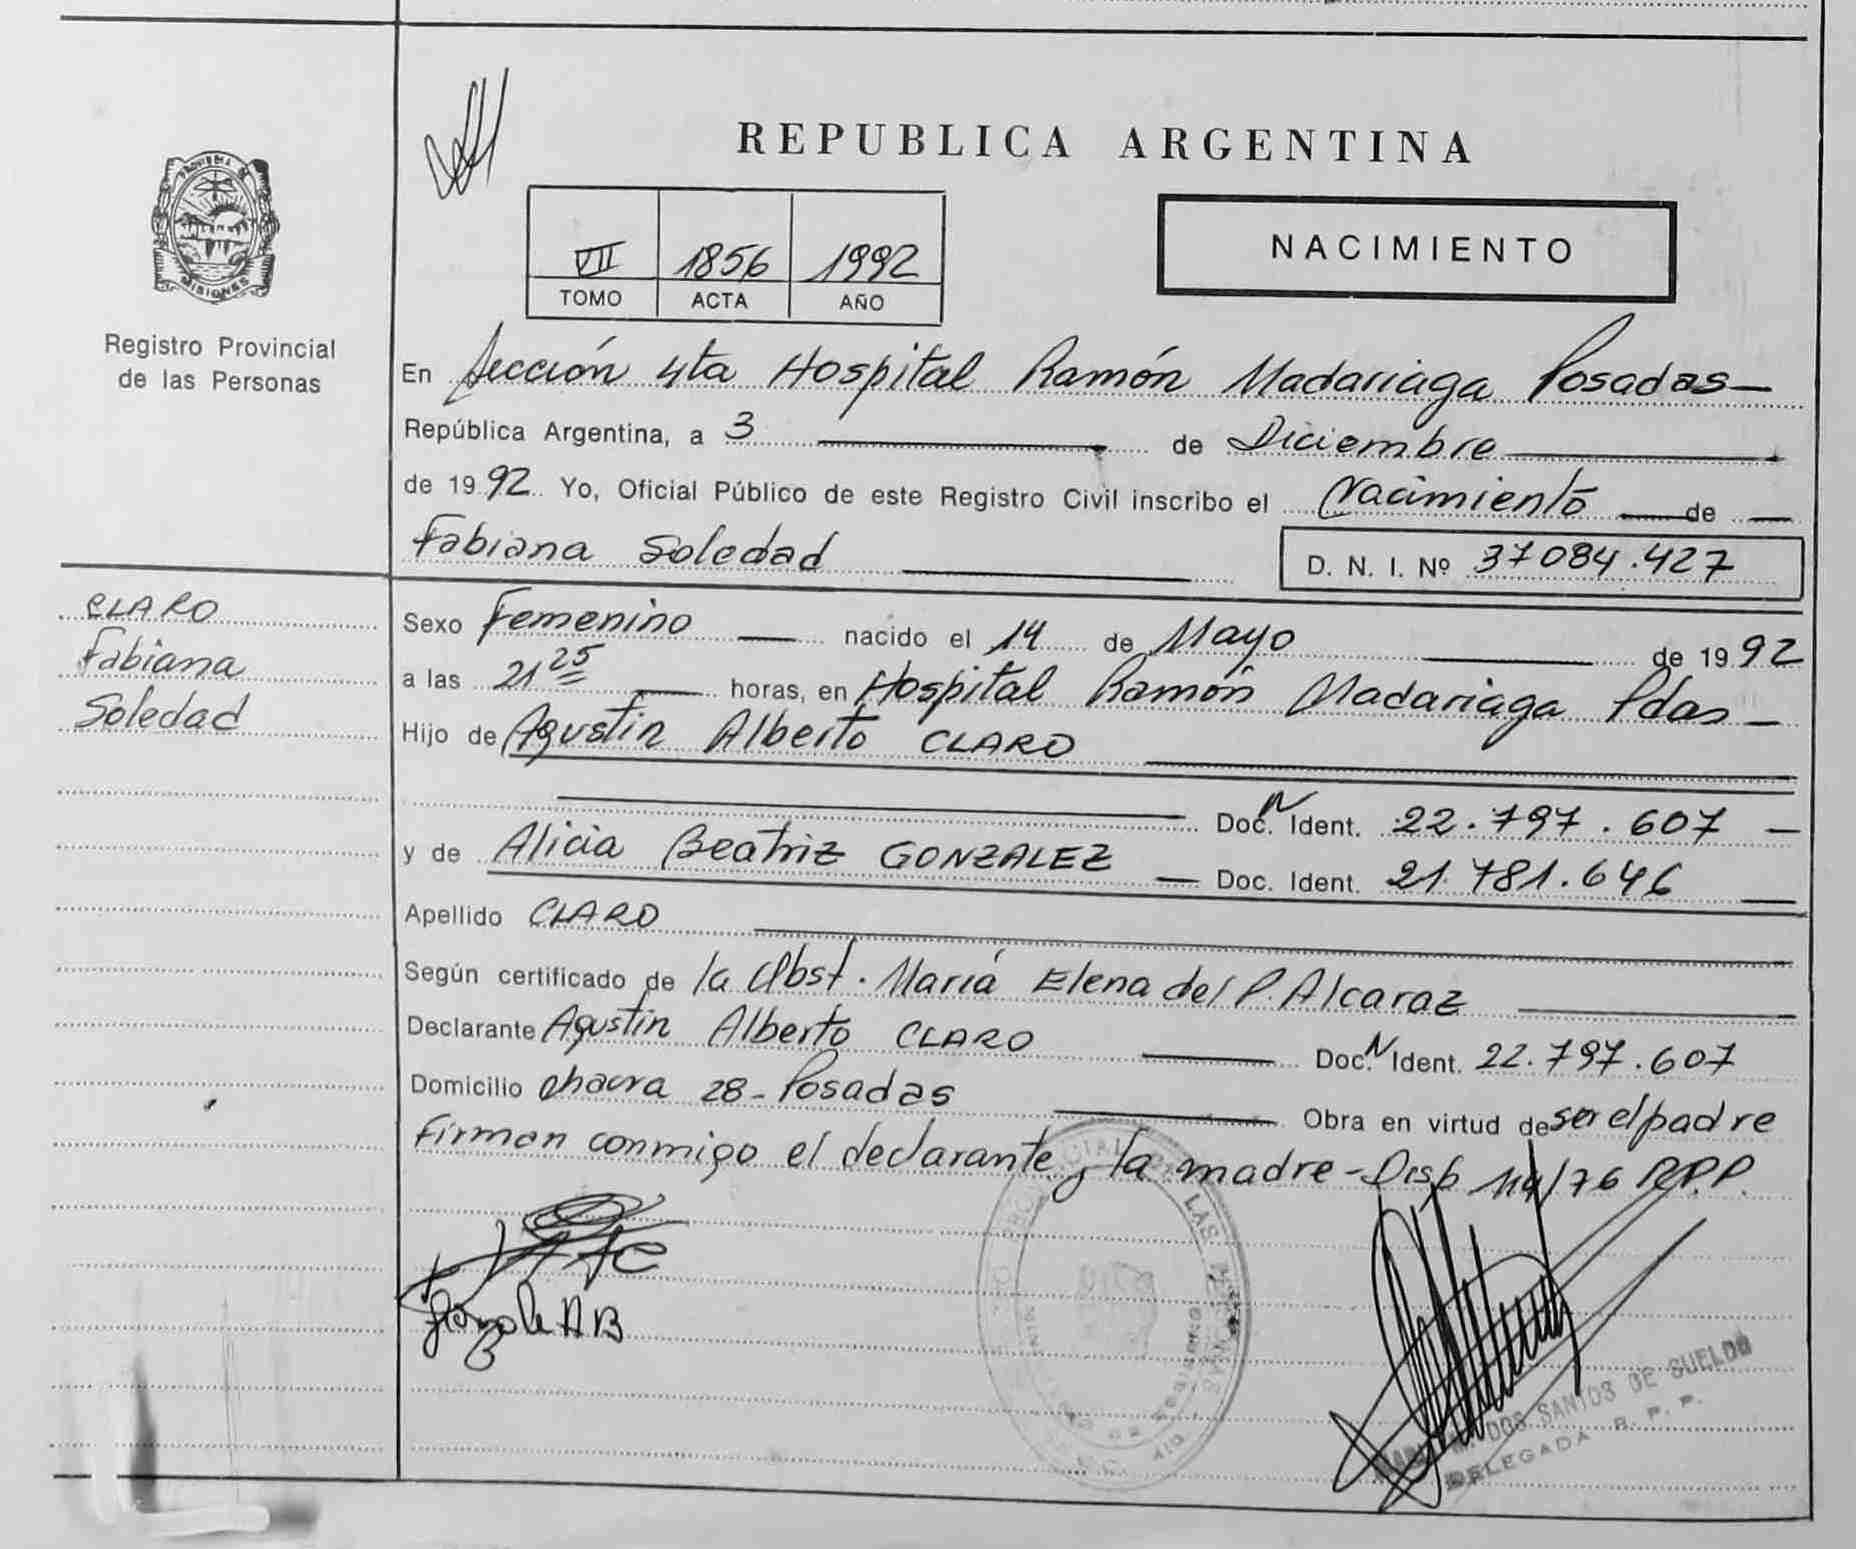 REPUBLICA ARGENTINA
NACIMIENTO
VII 1856 1992
TOMO ACTA AÑO
PROVINCIA DE
MISIONES
Registro Provincial
de las Personas
En Sección 4ta Hospital Ramón Madariaga Posadas
República Argentina, a 3 de Diciembre
de 1992 Yo, Oficial Público de este Registro Civil inscribo el Nacimiento de
Fabiana Soledad
D. N. I. Nº 37084.427
CLARO
Fabiana
Soledad
Sexo Femenino nacido el 14 de Mayo de 1992
a las 21 25 horas, en Hospital Ramón Madariaga Pdas
Hijo de Agustin Alberto CLARO
Doc. N Ident. 22.797.607
y de Alicia Beatriz GONZALEZ Doc. Ident. 21.781.646
Apellido CLARO
Según certificado de la Obst. María Elena del P. Alcaraz
Declarante Agustin Alberto CLARO Doc. N Ident. 22.797.607
Domicilio chacra 28-Posadas Obra en virtud de ser el padre
Firman conmigo el declarante y la madre-Disp 114/76 R.P.P.
A B
DOS SANTOS DE SUELDO
DELEGADA R. P. P.